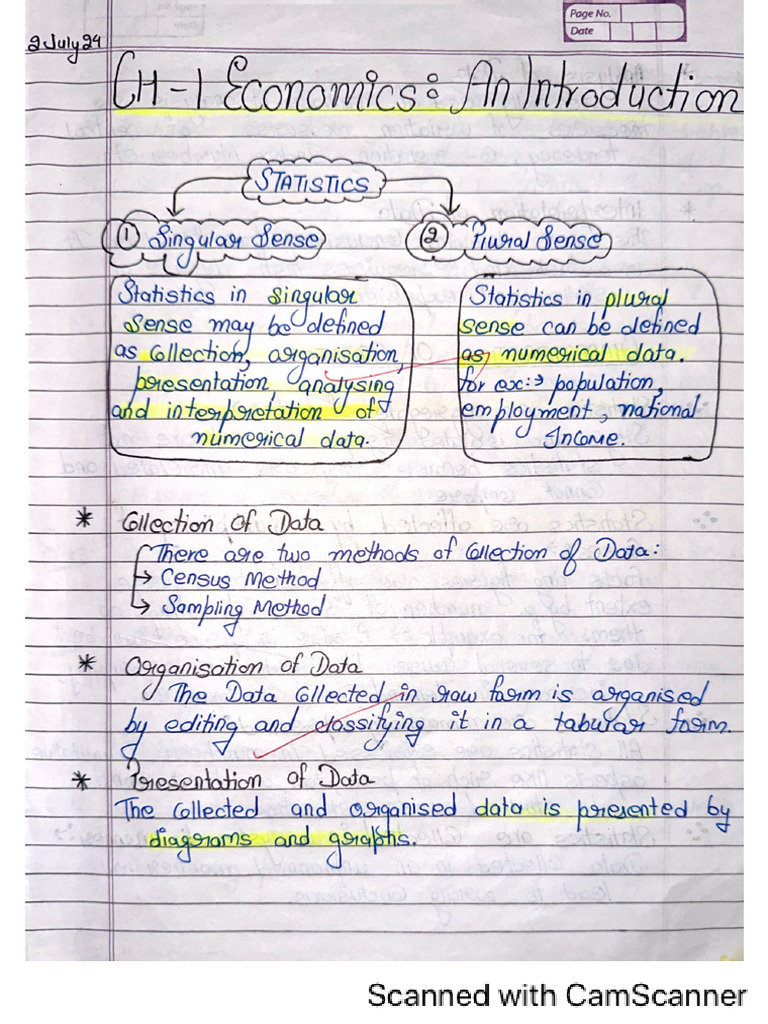 Page No.
Date
2 July 24
CH-1 Economics: An Introduction
STATISTICS
① Singular Sense
② Plural Sense
Statistics in singular
sense may be defined
as collection, organisation,
presentation, analysing
and interpretation of
numerical data.
Statistics in plural
sense can be defined
as, numerical data.
for ex:→ population,
employment, national
Income.
* Collection of Data
There are two methods of collection of Data:
→ Census Method
→ Sampling Method
* Organisation of Data
The Data collected in raw form is organised
by editing and classifying it in a tabular form.
* Presentation of Data
The collected and organised data is presented by
diagrams and graphs.
Scanned with CamScanner